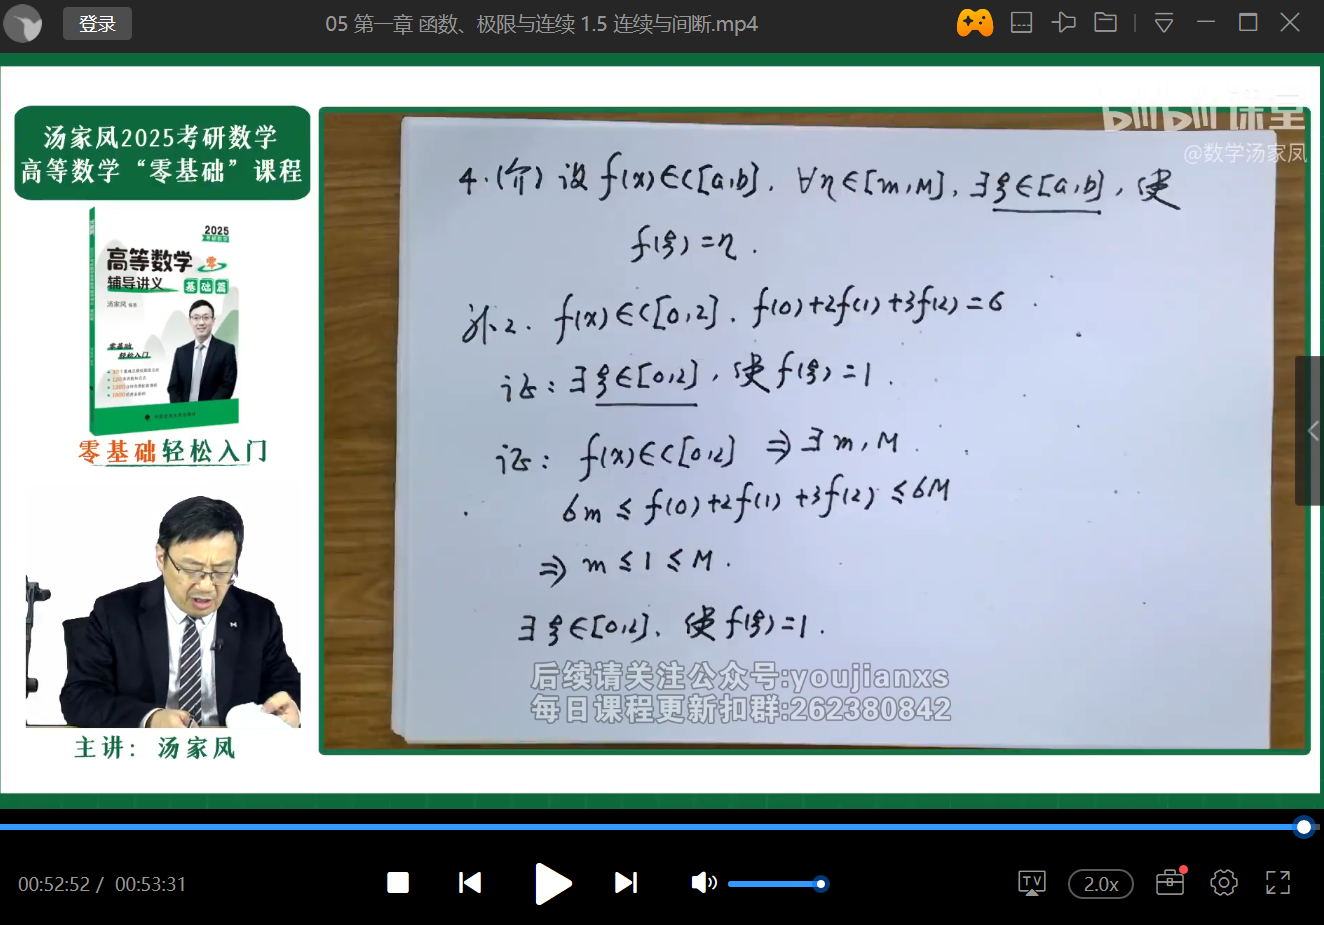 登录
05 第一章 函数、极限与连续 1.5 连续与间断.mp4
汤家凤2025考研数学
高等数学“零基础”课程
2025
高等数学 零
辅导讲义 基础篇
汤家凤
零基础
轻松入门
零基础轻松入门
主讲：汤家凤
bilibili课堂
@数学汤家凤
4.(介) 设 f(x)∈C[a,b], ∀η∈[m,M], ∃ξ∈[a,b], 使
f(ξ)=η.
例2. f(x)∈C[0,2], f(0)+2f(1)+3f(2)=6
证: ∃ξ∈[0,2], 使f(ξ)=1.
证: f(x)∈C[0,2] ⇒ ∃m,M.
6m ≤ f(0)+2f(1)+3f(2) ≤ 6M
⇒ m ≤ 1 ≤ M.
∃ξ∈[0,2], 使f(ξ)=1.
后续请关注公众号:youjianxs
每日课程更新扣群:262380842
00:52:52 / 00:53:31
TV
2.0x